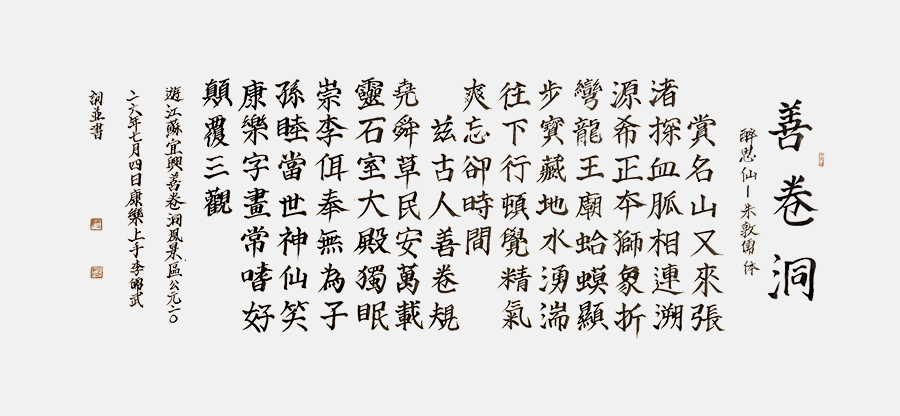 善卷洞
醉思仙—朱敦儒体
賞名山又來張
渚探血脈相連溯
源希正夲獅象折
彎龍王廟蛤蟆顯
步寶藏地水湧湍
往下行頓覺精氣
爽忘卻時間
茲古人善卷規
堯舜草民安萬載
靈石室大殿獨眠
崇李佴奉無為子
孫睦當世神仙笑
康樂字畫常嗜好
顛覆三觀
遊江蘇宜興善卷洞風景區公元二〇
二六年七月四日康樂上手李武
詞並書